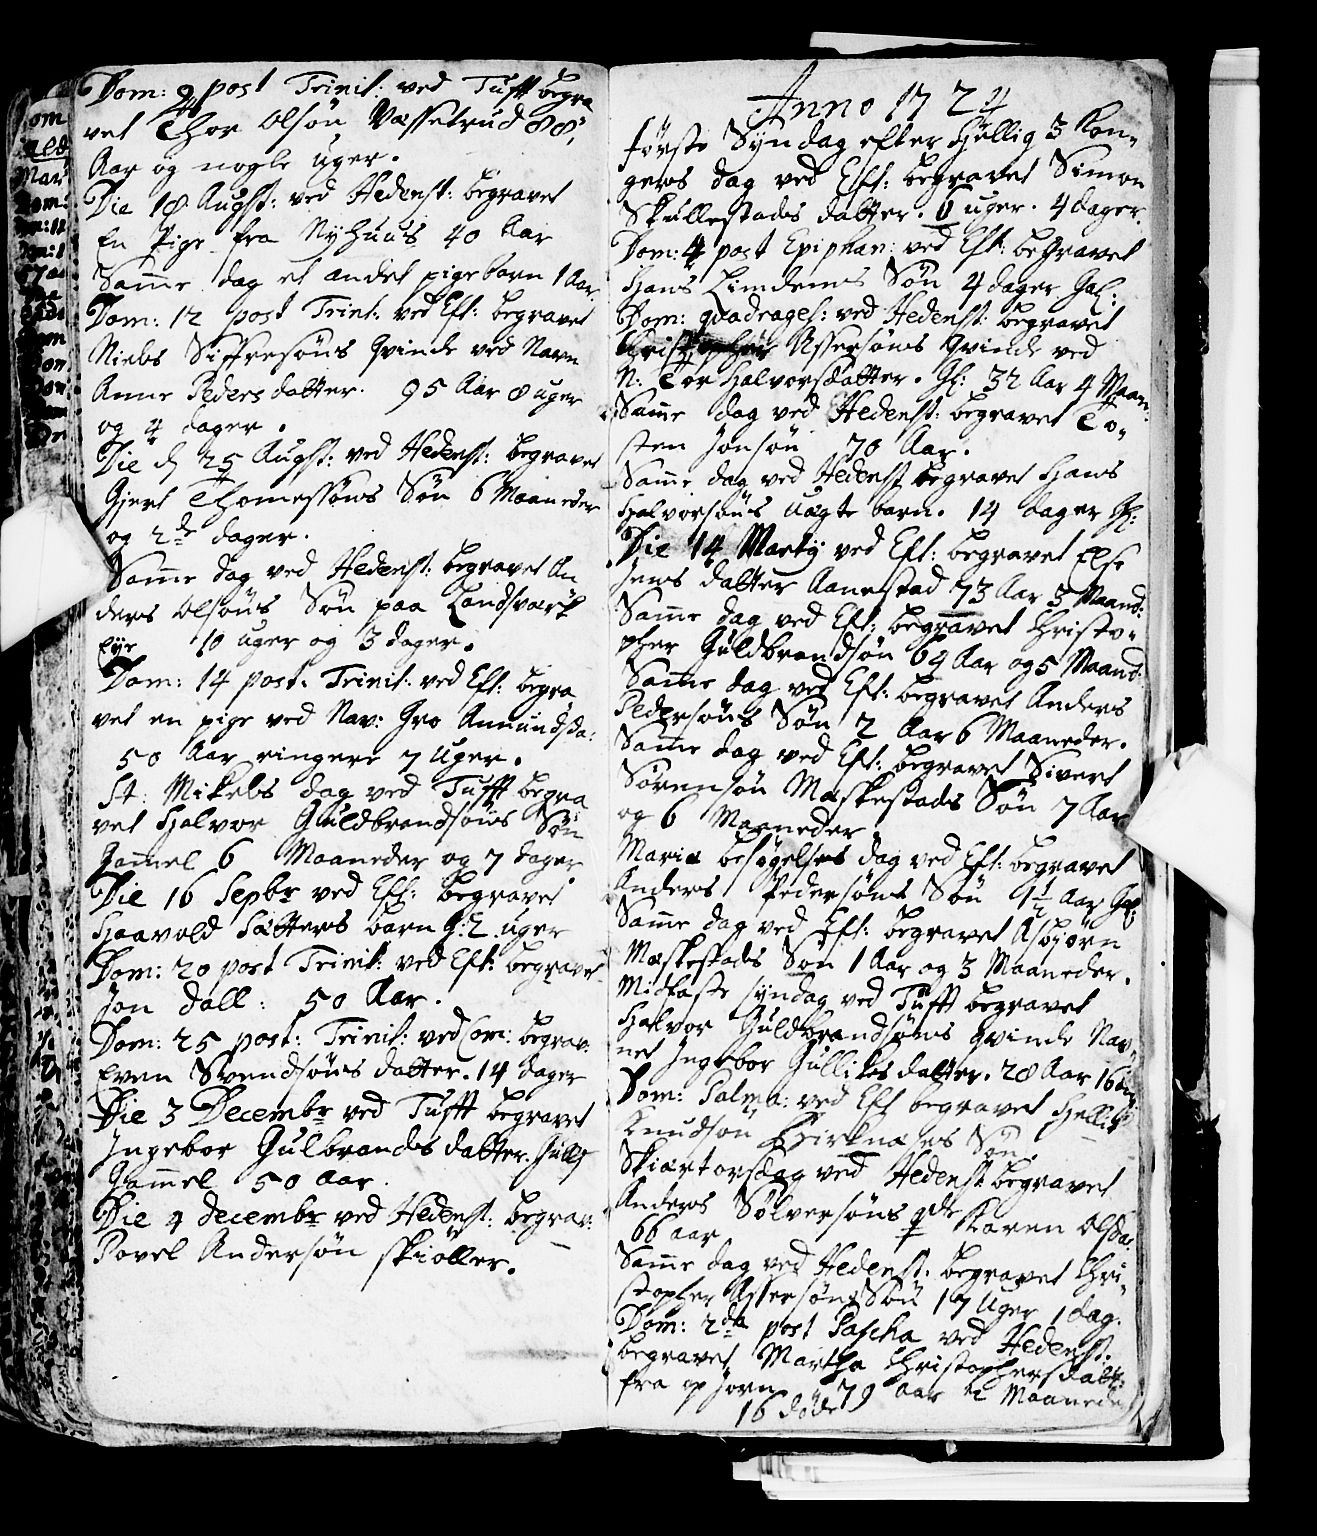 Dom: 9 post Trinit: ved Tufft begra
vet Thor Olsøn Vassetrud 88
Aar og nogle uger.
Die 18 Augst: ved Hedenst: begravet
En Pige fra Nyhuus 40 Aar
Samme dag et andet pigebarn 1 Aar.
Dom: 12 post Trinit: ved Eft: begravet
Niels Siffresøns Qvinde ved Navn
Anne Peders datter. 95 Aar 8 uger
og 4 dager.
Die 25 Augst: ved Hedenst: begravet
Gjert Thomessøns Søn 6 Maaneder
og 2de dager.
Samme dag ved Hedenst: begravet An
ders Olsøns Søn paa Landsværk
Eye 10 uger og 3 dager.
Dom: 14 post. Trinit. ved Eft: begra
vet en pige ved Nav: Gro Amundsda:
50 Aar ringere 7 Uger.
St: Mikels dag ved Tufft begra
vet Halvor Guldbrandsøns Søn
Gammel 6 Maaneder og 7 dager
Die 16 Sepbr ved Eft: begravet
Haavold Sætters barn G: 2 uger
Dom: 20 post Trinit: ved Eft: begravet
Jon Dall: 50 Aar.
Dom: 25 post: Trinit: ved Com: begrav:
Even Svendsøns datter. 14 dager
Die 3 Decembr ved Tufft begravet
Ingebor Gulbrands datter.
Gammel 50 Aar.
Die 4 decembr ved Hedenst: begrav:
Povel Andersøn skiøller.
Anno 1724
første Syndag efter Hellig 3 Kon-
gers dag ved Eft: begravet Simon
Skullestads datter. uger. 4 dager.
Dom: 4 post Epiphan: ved Eft: begravet
Hans Lindems Søn 4 dager Gal:
Dom: qvadrages: ved Hedenst: begravet
Christopher Assersøns Qvinde ved
N: Tor Halvorsdatter. Gl: 32 Aar 4 Maan
Samme dag ved Hedenst: begravet To-
sten Jonsøn 70 Aar.
Samme dag ved Hedenst begravet Hans
Halvorsøns uægte barn. 14 dager Gl:
Die 14 Marty ved Eft: begravet Else
Jens datter Aanestad 73 Aar 3 Maand:
Samme dag ved Eft: begravet Christo-
pher Guldbrandsøn 64 Aar og 5 Maand:
Samme dag ved Eft: begravet Anders
Pedersøns Søn 2 Aar 6 Maaneder.
Samme dag ved Eft: begravet Sivert
Sørensøn Mæskestads Søn 7 Aar
og 6 Maaneder
Mariæ besøgelses dag ved Eft: begravet
Anders Pedersøns Søn 1 1/2 Aar Gal:
Samme dag ved Eft: begravet Asbjørn
Mæskestads Søn 1 Aar og 3 Maaneder.
Midfaste syndag ved Tufft begravet
Halvor Guldbrandsøns Qvinde Nav-
net Ingebor Gulliks datter. 28 Aar 16
Dom: Palma: ved Eft begravet Hellik
Knudsøn Birknæses Søn.
Skiærtorsdag ved Hedenst begravet
Anders Sølversøns Karen Olsda:
66 aar
Samme dag ved Hedenst. begravet Chri-
stopher Assersøns Søn 17 Uger 1 dag.
Dom: 2da post Pascha ved Hedenst.
begravet Martha Christophersdatt:
fra 79 aar 2 Maaneder
16 døde